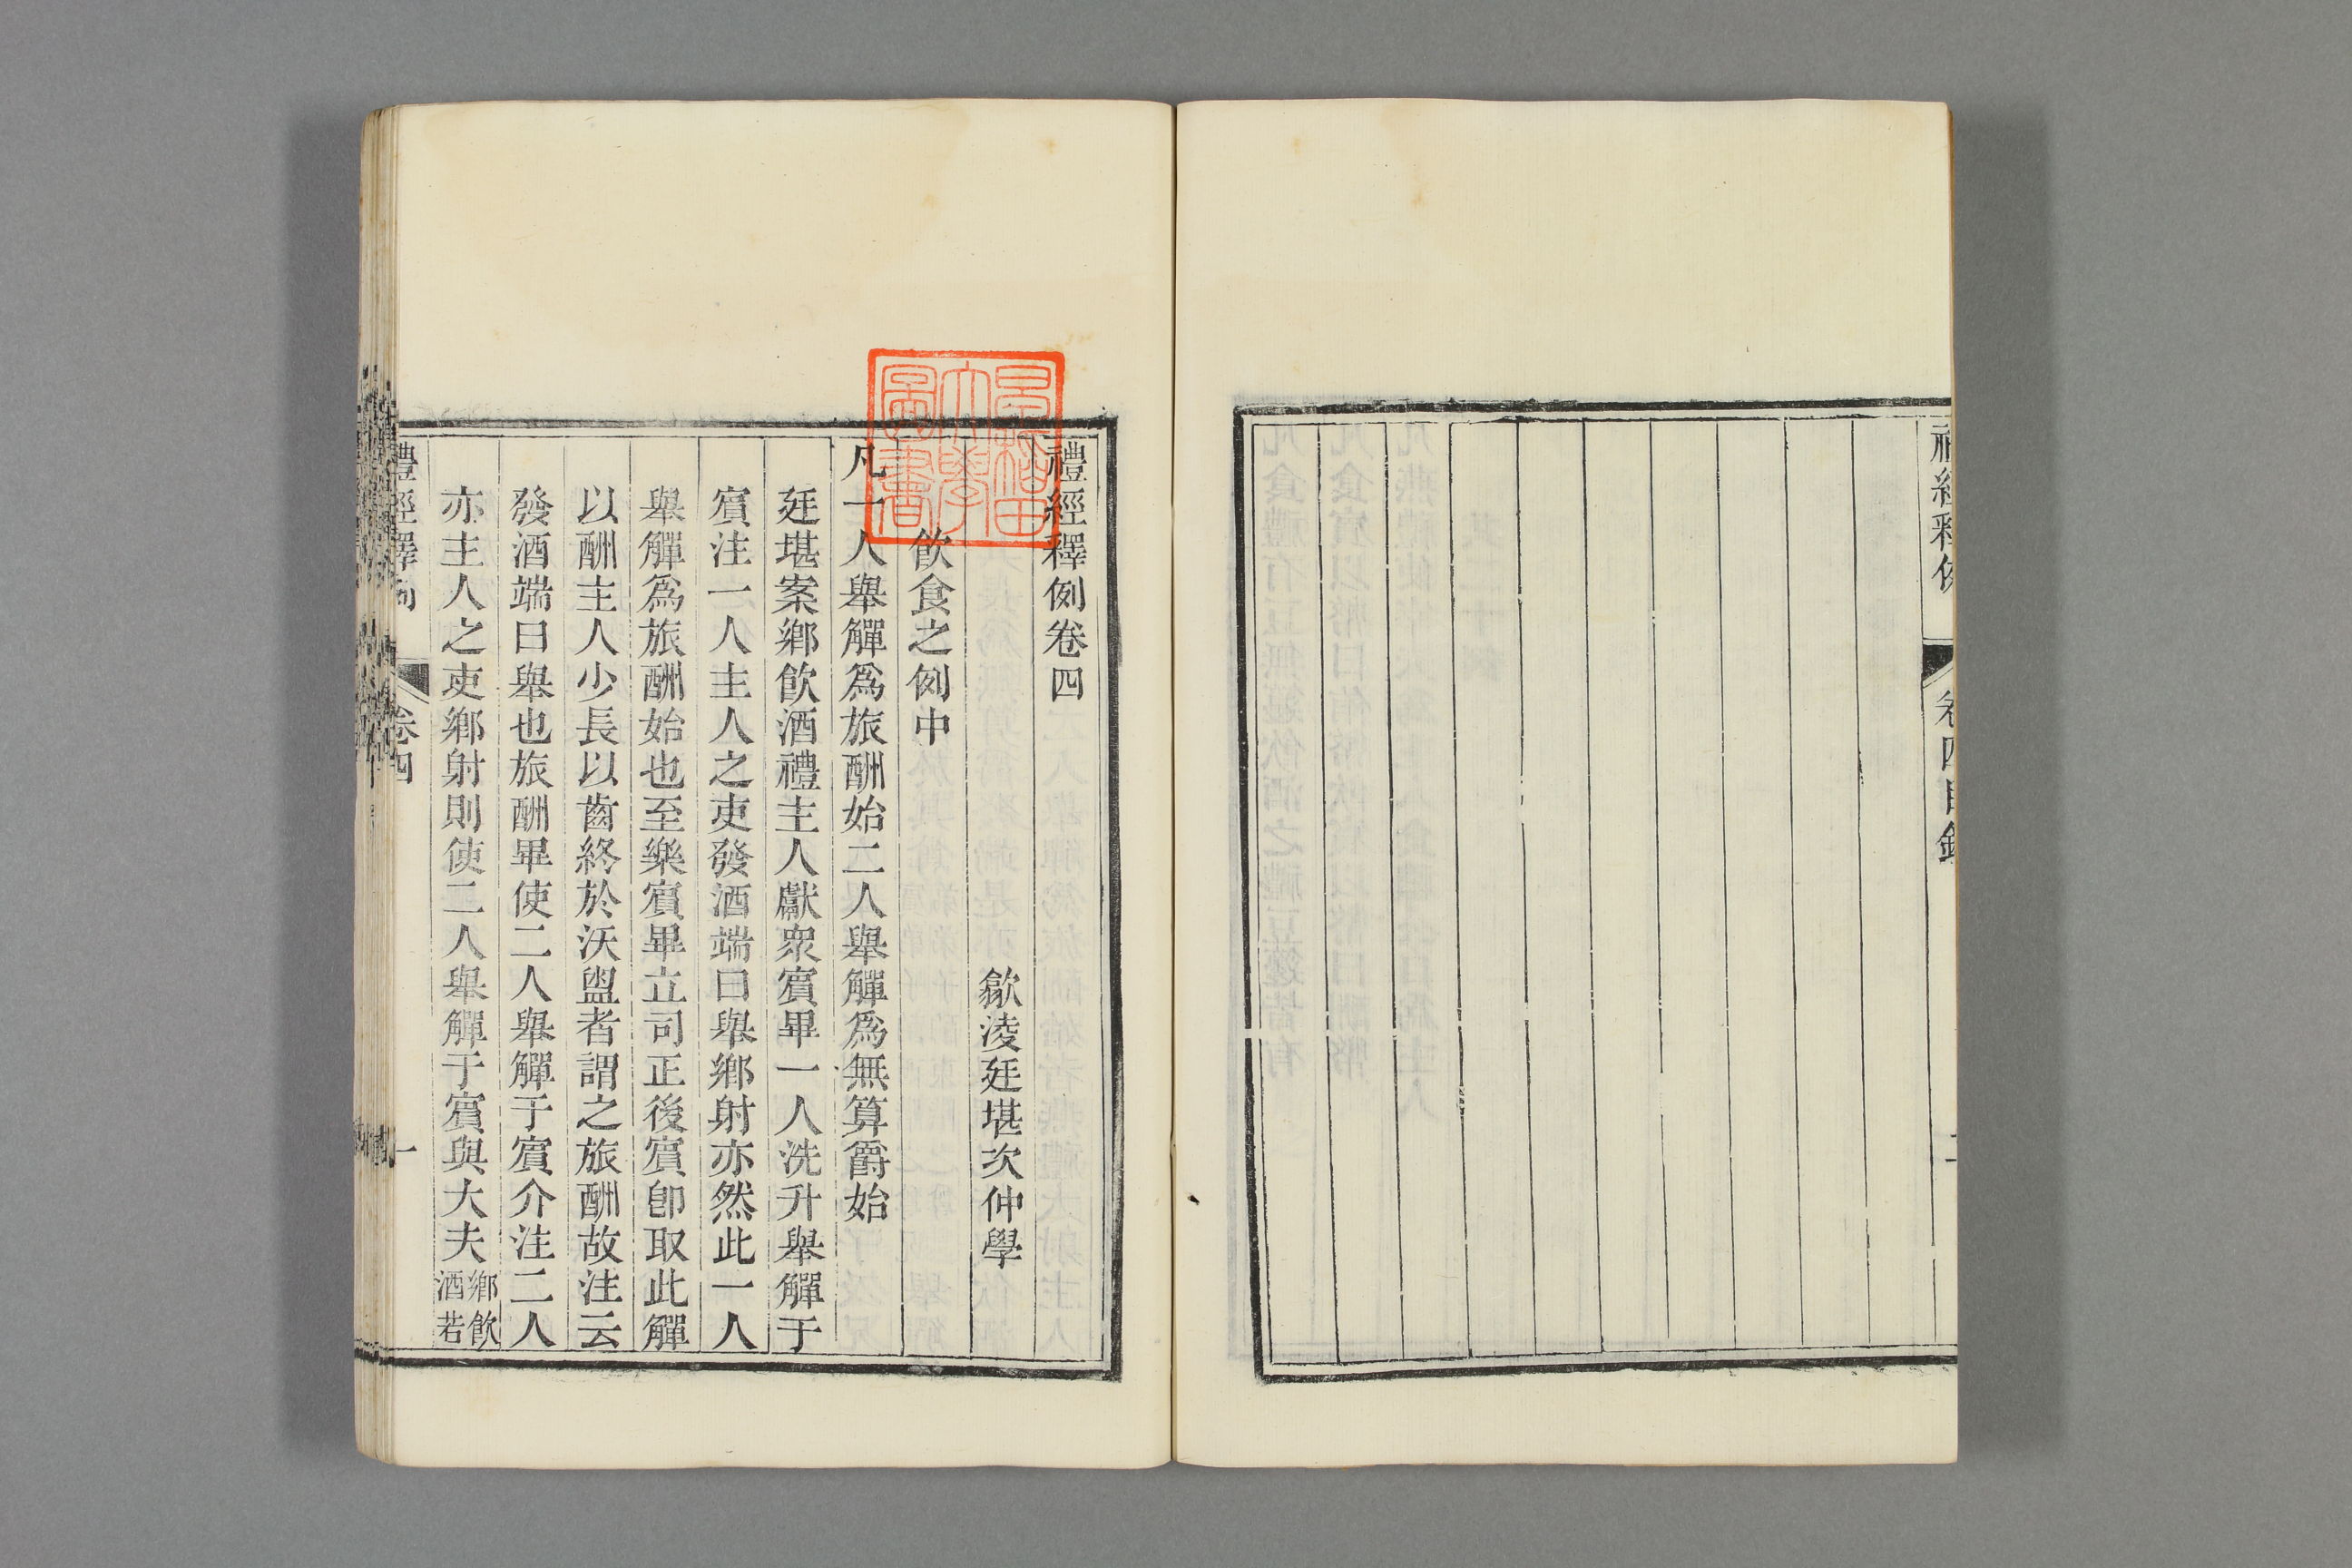 禮經釋例
卷四目錄
二
禮經釋例卷四
歙淩廷堪次仲學
飲食之例中
凡一人舉觶爲旅酬始二人舉觶爲無算爵始
廷堪案鄉飲酒禮主人獻衆賓畢一人洗升舉觶于
賓注一人主人之吏發酒端曰舉鄉射亦然此一人
舉觶爲旅酬始也至樂賓畢立司正後賓卽取此觶
以酬主人少長以齒終於沃盥者謂之旅酬故注云
發酒端曰舉也旅酬畢使二人舉觶于賓介注二人
亦主人之吏鄉射則使二人舉觶于賓與大夫鄉飲
酒若
禮經釋例
卷四
一
早稻田
大學
圖書